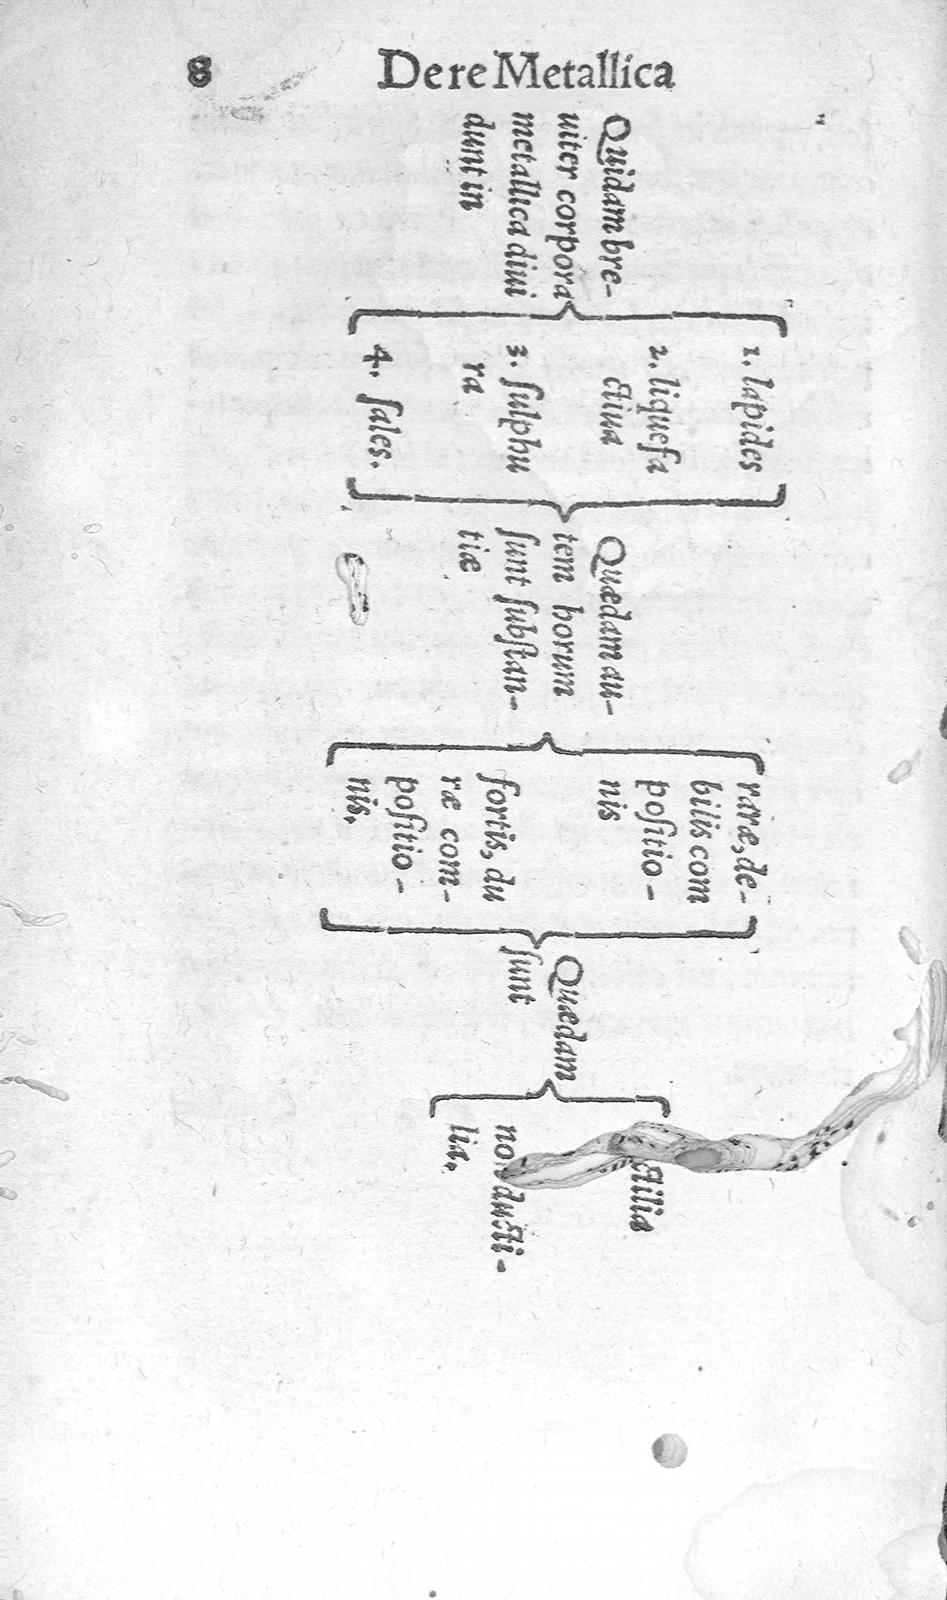 8
De re Metallica
Quidam bre-
uiter corpora
metallica diui
dunt in
1. lapides
2. liquefa
ctiua
3. ſulphu
ra
4. ſales.
Quædam au-
tem horum
ſunt ſubſtan-
tiæ
raræ, de-
bilis com
poſitio-
nis
fortis, du
ræ com-
poſitio-
nis.
Quædam
ſunt
ducti-
lia.